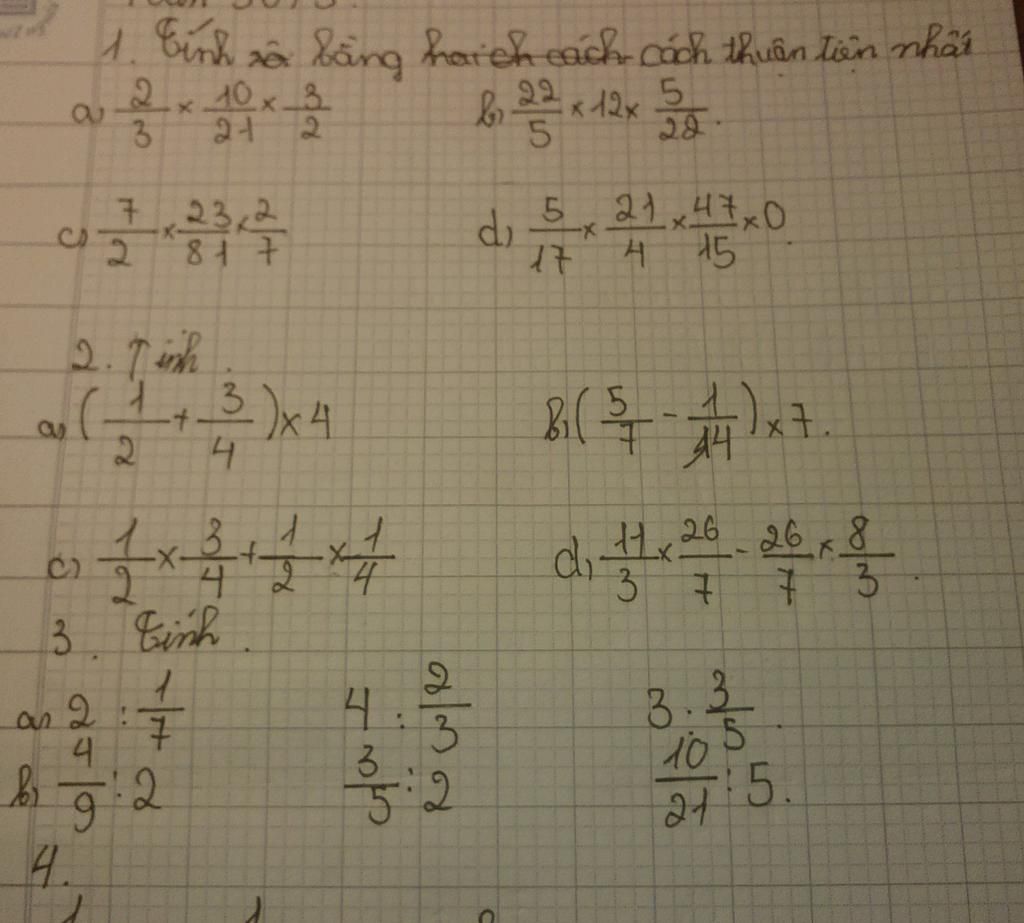 1. Tính bằng cách thuận tiện nhất
a) 2/3 × 10/21 × 3/2 b) 22/5 × 12 × 5/22.
c) 7/2 × 23/81 × 2/7 d) 5/17 × 21/4 × 47/15 × 0.
2. Tính.
a) (1/2 + 3/4) × 4 b) (5/7 - 1/14) × 7.
c) 1/2 × 3/4 + 1/2 × 1/4 d) 11/3 × 26/7 - 26/7 × 8/3.
3. Tính.
a) 2 : 1/7 4 : 2/3 3 : 3/5.
b) 4/9 : 2 3/5 : 2 10/21 : 5.
4.